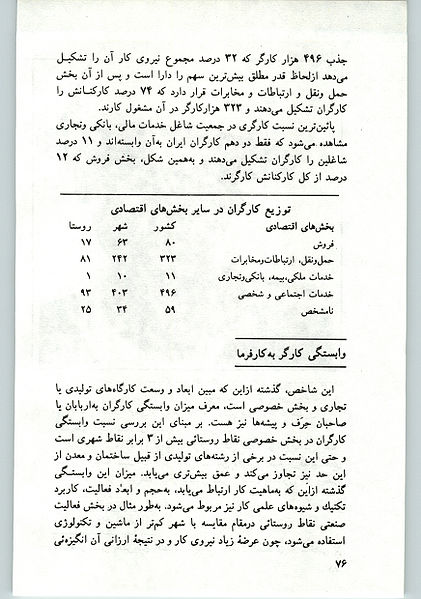 جذب ۴۹۶ هزار کارگر که ۳۲ درصد مجموع نیروی کار آن را تشکیل
می‌دهد ازلحاظ قدر مطلق بیش‌ترین سهم را دارا است و پس از آن بخش
حمل ونقل و ارتباطات و مخابرات قرار دارد که ۷۴ درصد کارکنـانش را
کارگران تشکیل می‌دهند و ۳۲۳ هزارکارگر در آن مشغول کارند.
پائین‌ترین نسبت کارگری در جمعیت شاغل خدمات مالی، بانکی وتجاری
مشاهده می‌شود که فقط دو دهم کارگران ایران به‌آن وابسته‌اند و ۱۱ درصد
شاغلین را کارگران تشکیل می‌دهند و به‌همین شکل، بخش فروش که ۱۲
درصد از کل کارکنانش کارگرند.
توزیع کارگران در سایر بخش‌های اقتصادی
بخش‌های اقتصادی کشور شهر روستا
فروش ۸۰ ۶۳ ۱۷
حمل‌ونقل، ارتباطات‌ومخابرات ۳۲۳ ۲۴۲ ۸۱
خدمات ملکی،بیمه، بانکی‌وتجاری ۱۱ ۱۰ ۱
خدمات اجتماعی و شخصی ۴۹۶ ۴۰۳ ۹۳
نامشخص ۵۹ ۳۴ ۲۵
وابستگی کارگر به‌کارفرما
این شاخص، گذشته ازاین که مبین ابعاد و وسعت کارگاه‌های تولیدی یا
تجاری و بخش خصوصی است، معرف میزان وابستگی کارگران به‌اربابان یا
صاحبان حِرَف و پیشه‌ها نیز هست. بر مبنای این بررسی نسبت وابستگی
کارگران در بخش خصوصی نقاط روستائی بیش از ۳ برابر نقاط شهری است
و حتی این نسبت در برخی از رشته‌های تولیدی از قبیل ساختمان و معدن از
این حد نیز تجاوز می‌کند و عمق بیش‌تری می‌یابد. میزان این وابستـگی
گذشته ازاین که به‌ماهیت کار ارتباط می‌یابد، به‌حجم و ابعاد فعالیت، کاربرد
تکنیك و شیوه‌های علمی کار نیز مربوط می‌شود. به‌طور مثال در بخش فعالیت
صنعتی نقاط روستائی درمقام مقایسه با شهر کم‌تر از ماشین و تکنولوژی
استفاده می‌شود، چون عرضهٔ زیاد نیروی کار و در نتیجهٔ ارزانی آن انگیزه‌ئی
۷۶